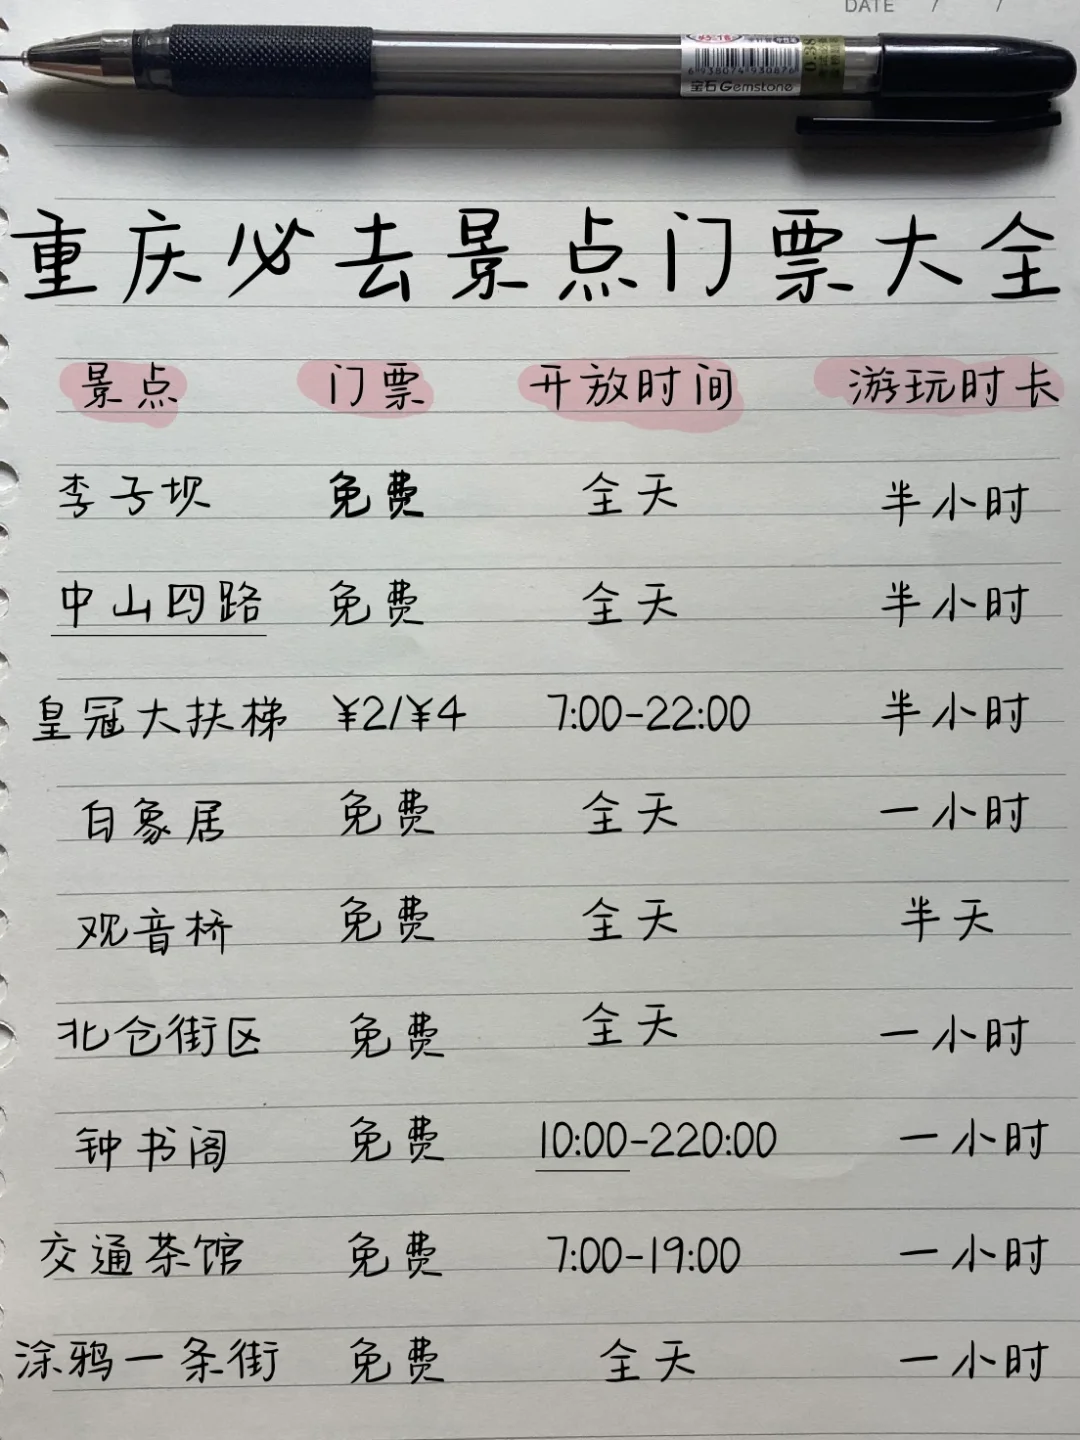 DATE / /
0.38
6938074930876
宝石Gemstone
重庆必去景点门票大全
景点 门票 开放时间 游玩时卡
李子坝 免费 全天 半小时
中山四路 免费 全天 半小时
皇冠大扶梯 ¥2/¥4 7:00-22:00 半小时
白象居 免费 全天 一小时
观音桥 免费 全天 半天
北仓街区 免费 全天 一小时
钟书阁 免费 10:00-220:00 一小时
交通茶馆 免费 7:00-19:00 一小时
涂鸦一条街 免费 全天 一小时